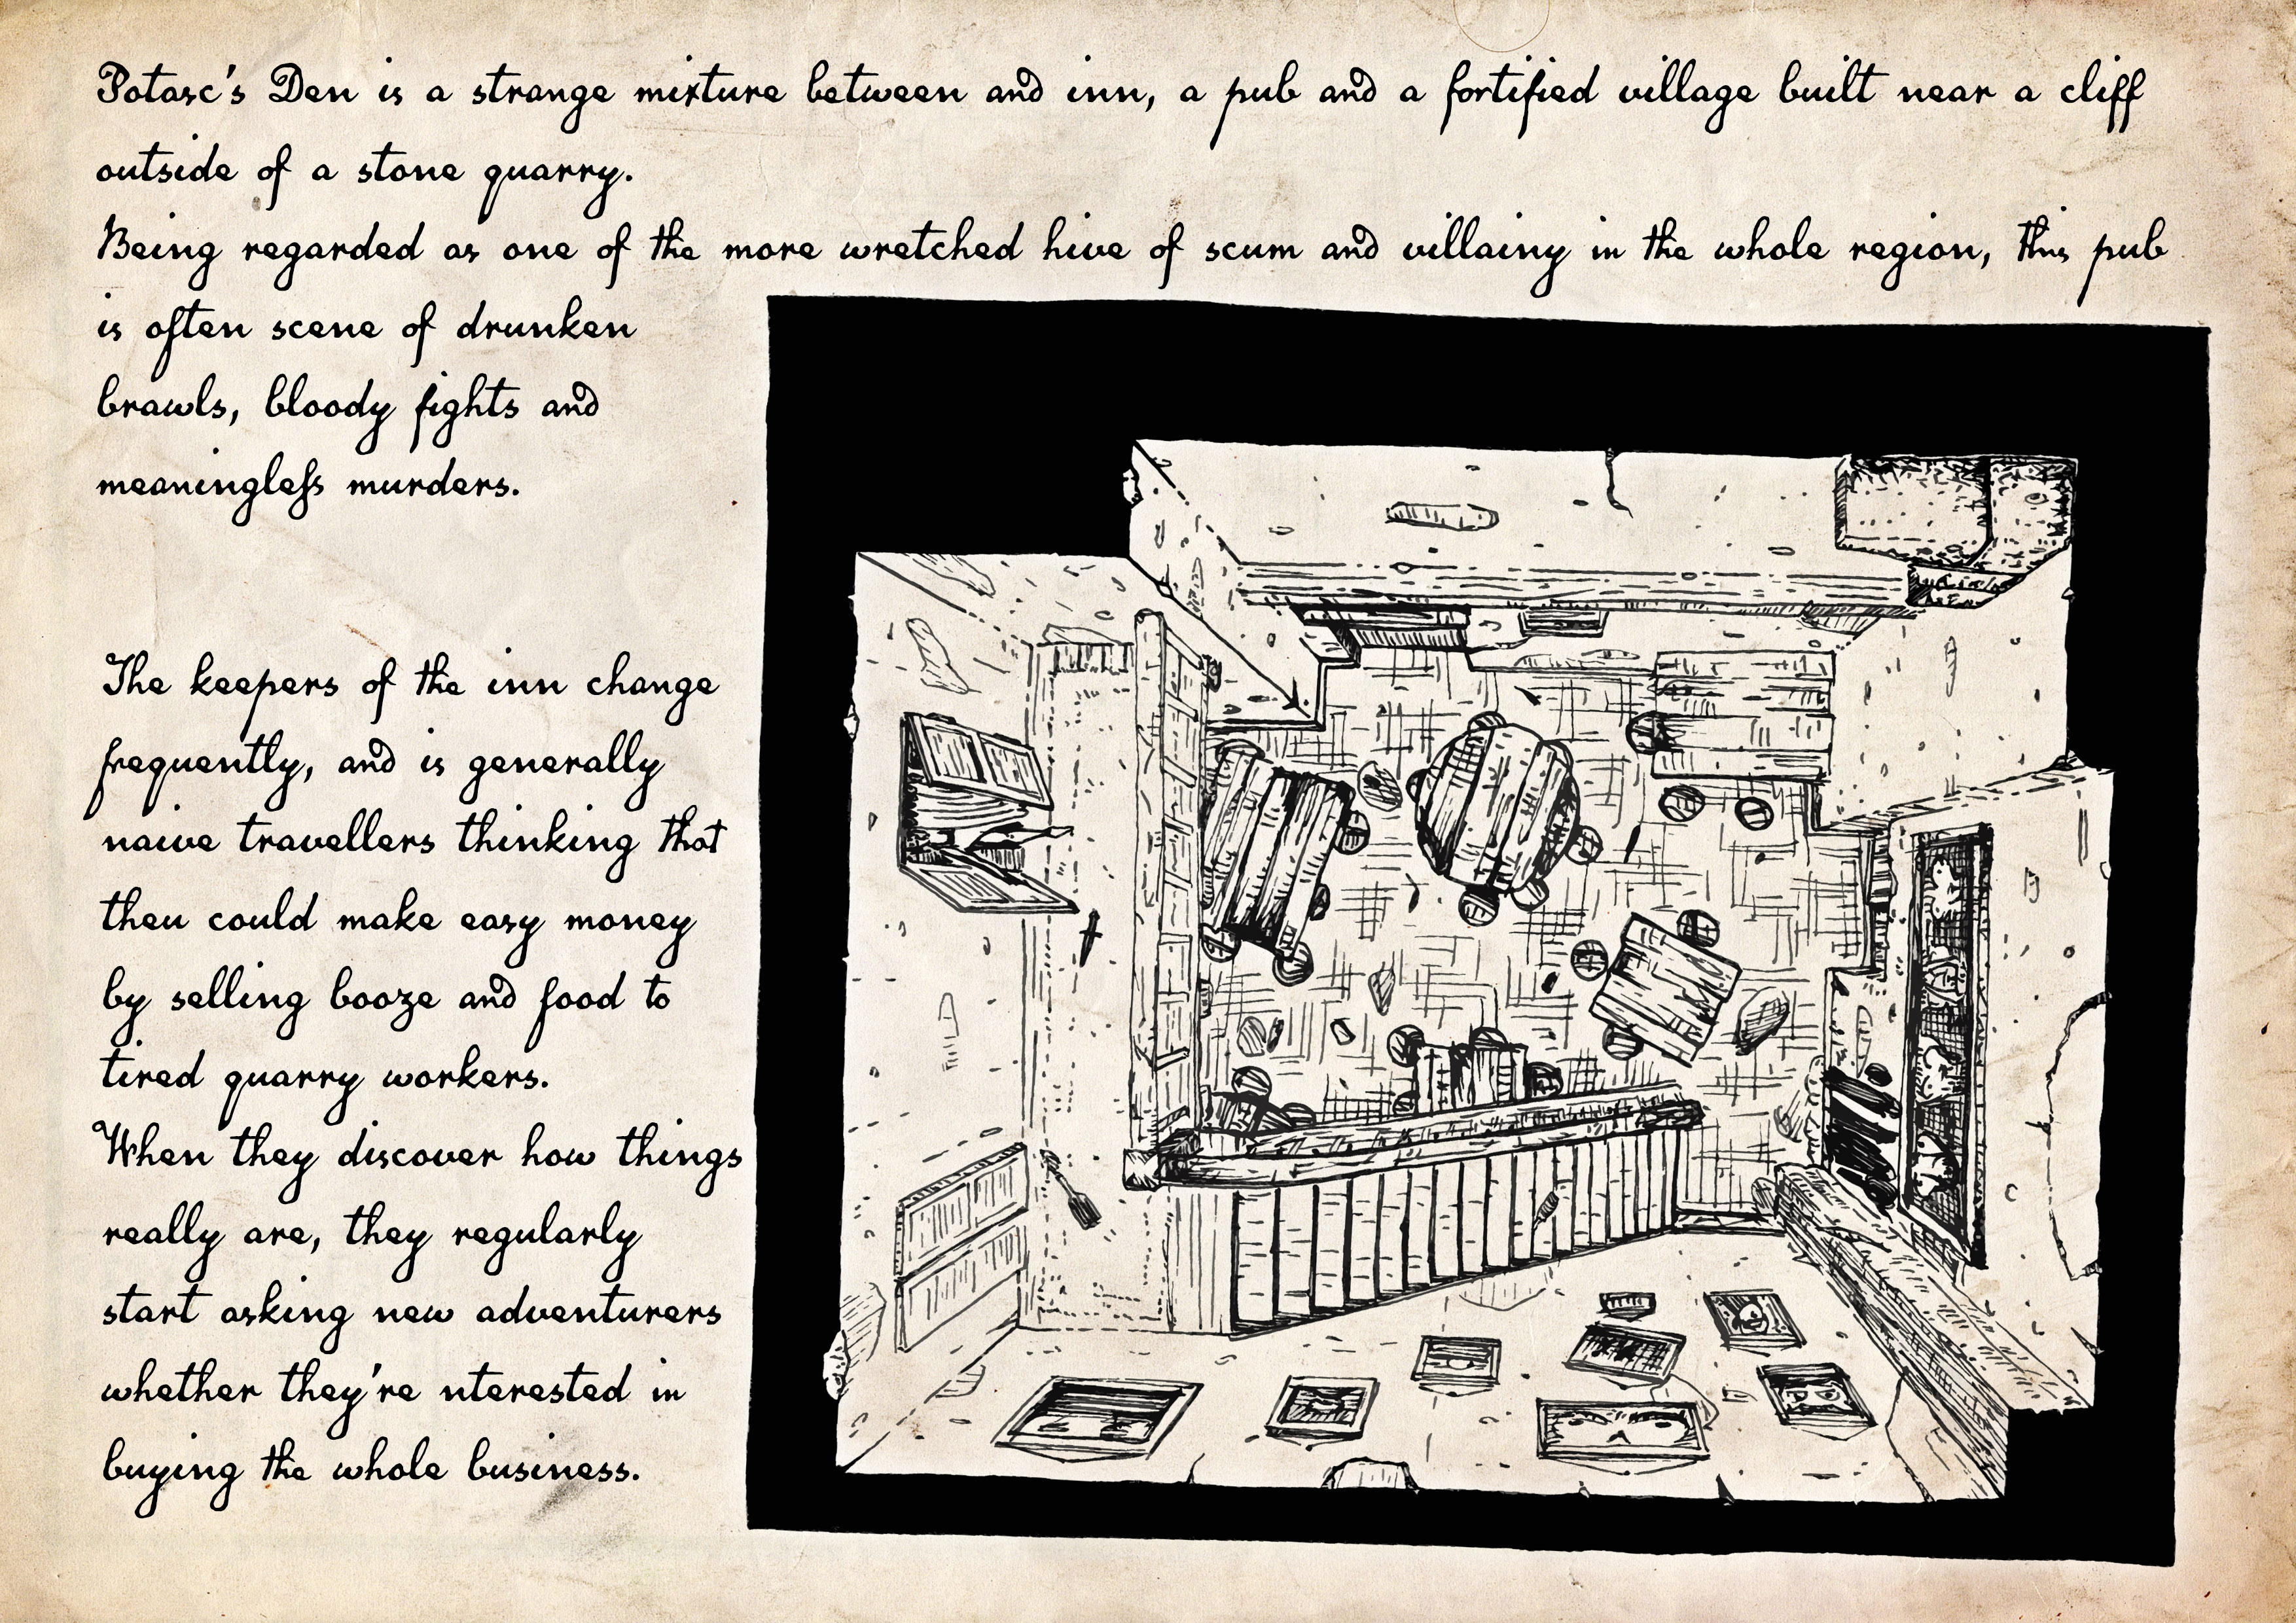 Potasc's Den is a strange mixture between and inn, a pub and a fortified village built near a cliff
outside of a stone quarry.
Being regarded as one of the more wretched hive of scum and villainy in the whole region, this pub
is often scene of drunken
brawls, bloody fights and
meaningless murders.
The keepers of the inn change
frequently, and is generally
naive travellers thinking that
theu could make easy money
by selling booze and food to
tired quarry workers.
When they discover how things
really are, they regularly
start asking new adventurers
whether they're nterested in
buying the whole business.